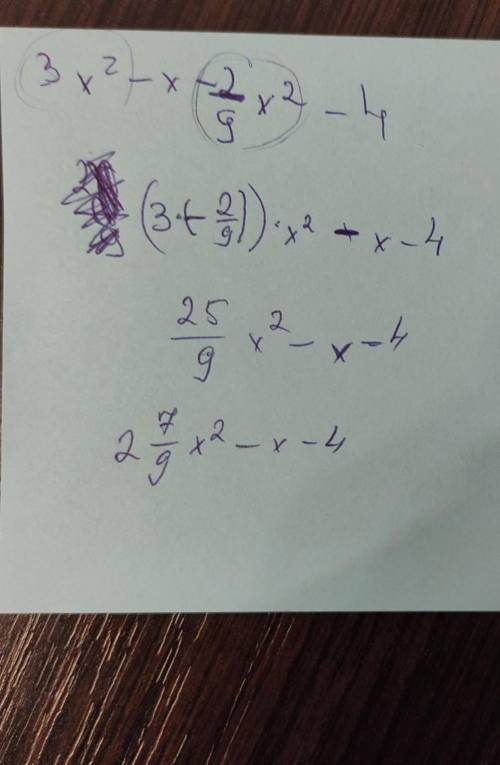 3x² - x - 2/9 x² - 4
(3 + (-2/9)) · x² - x - 4
25/9 x² - x - 4
2 7/9 x² - x - 4